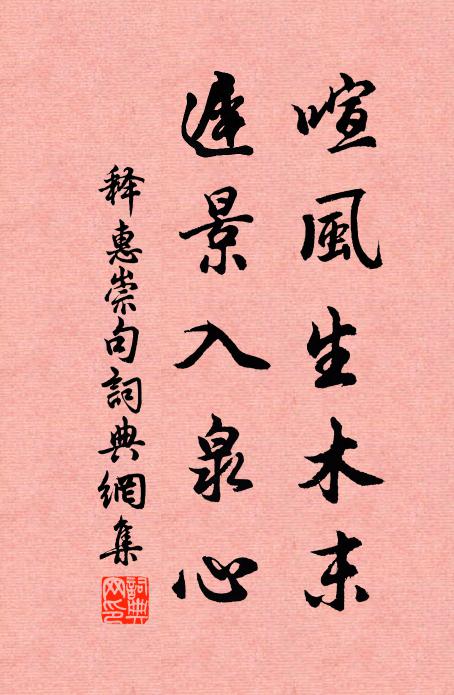 喧風生木末
遲景入泉心
释惠崇句詞典網集
詞典網印